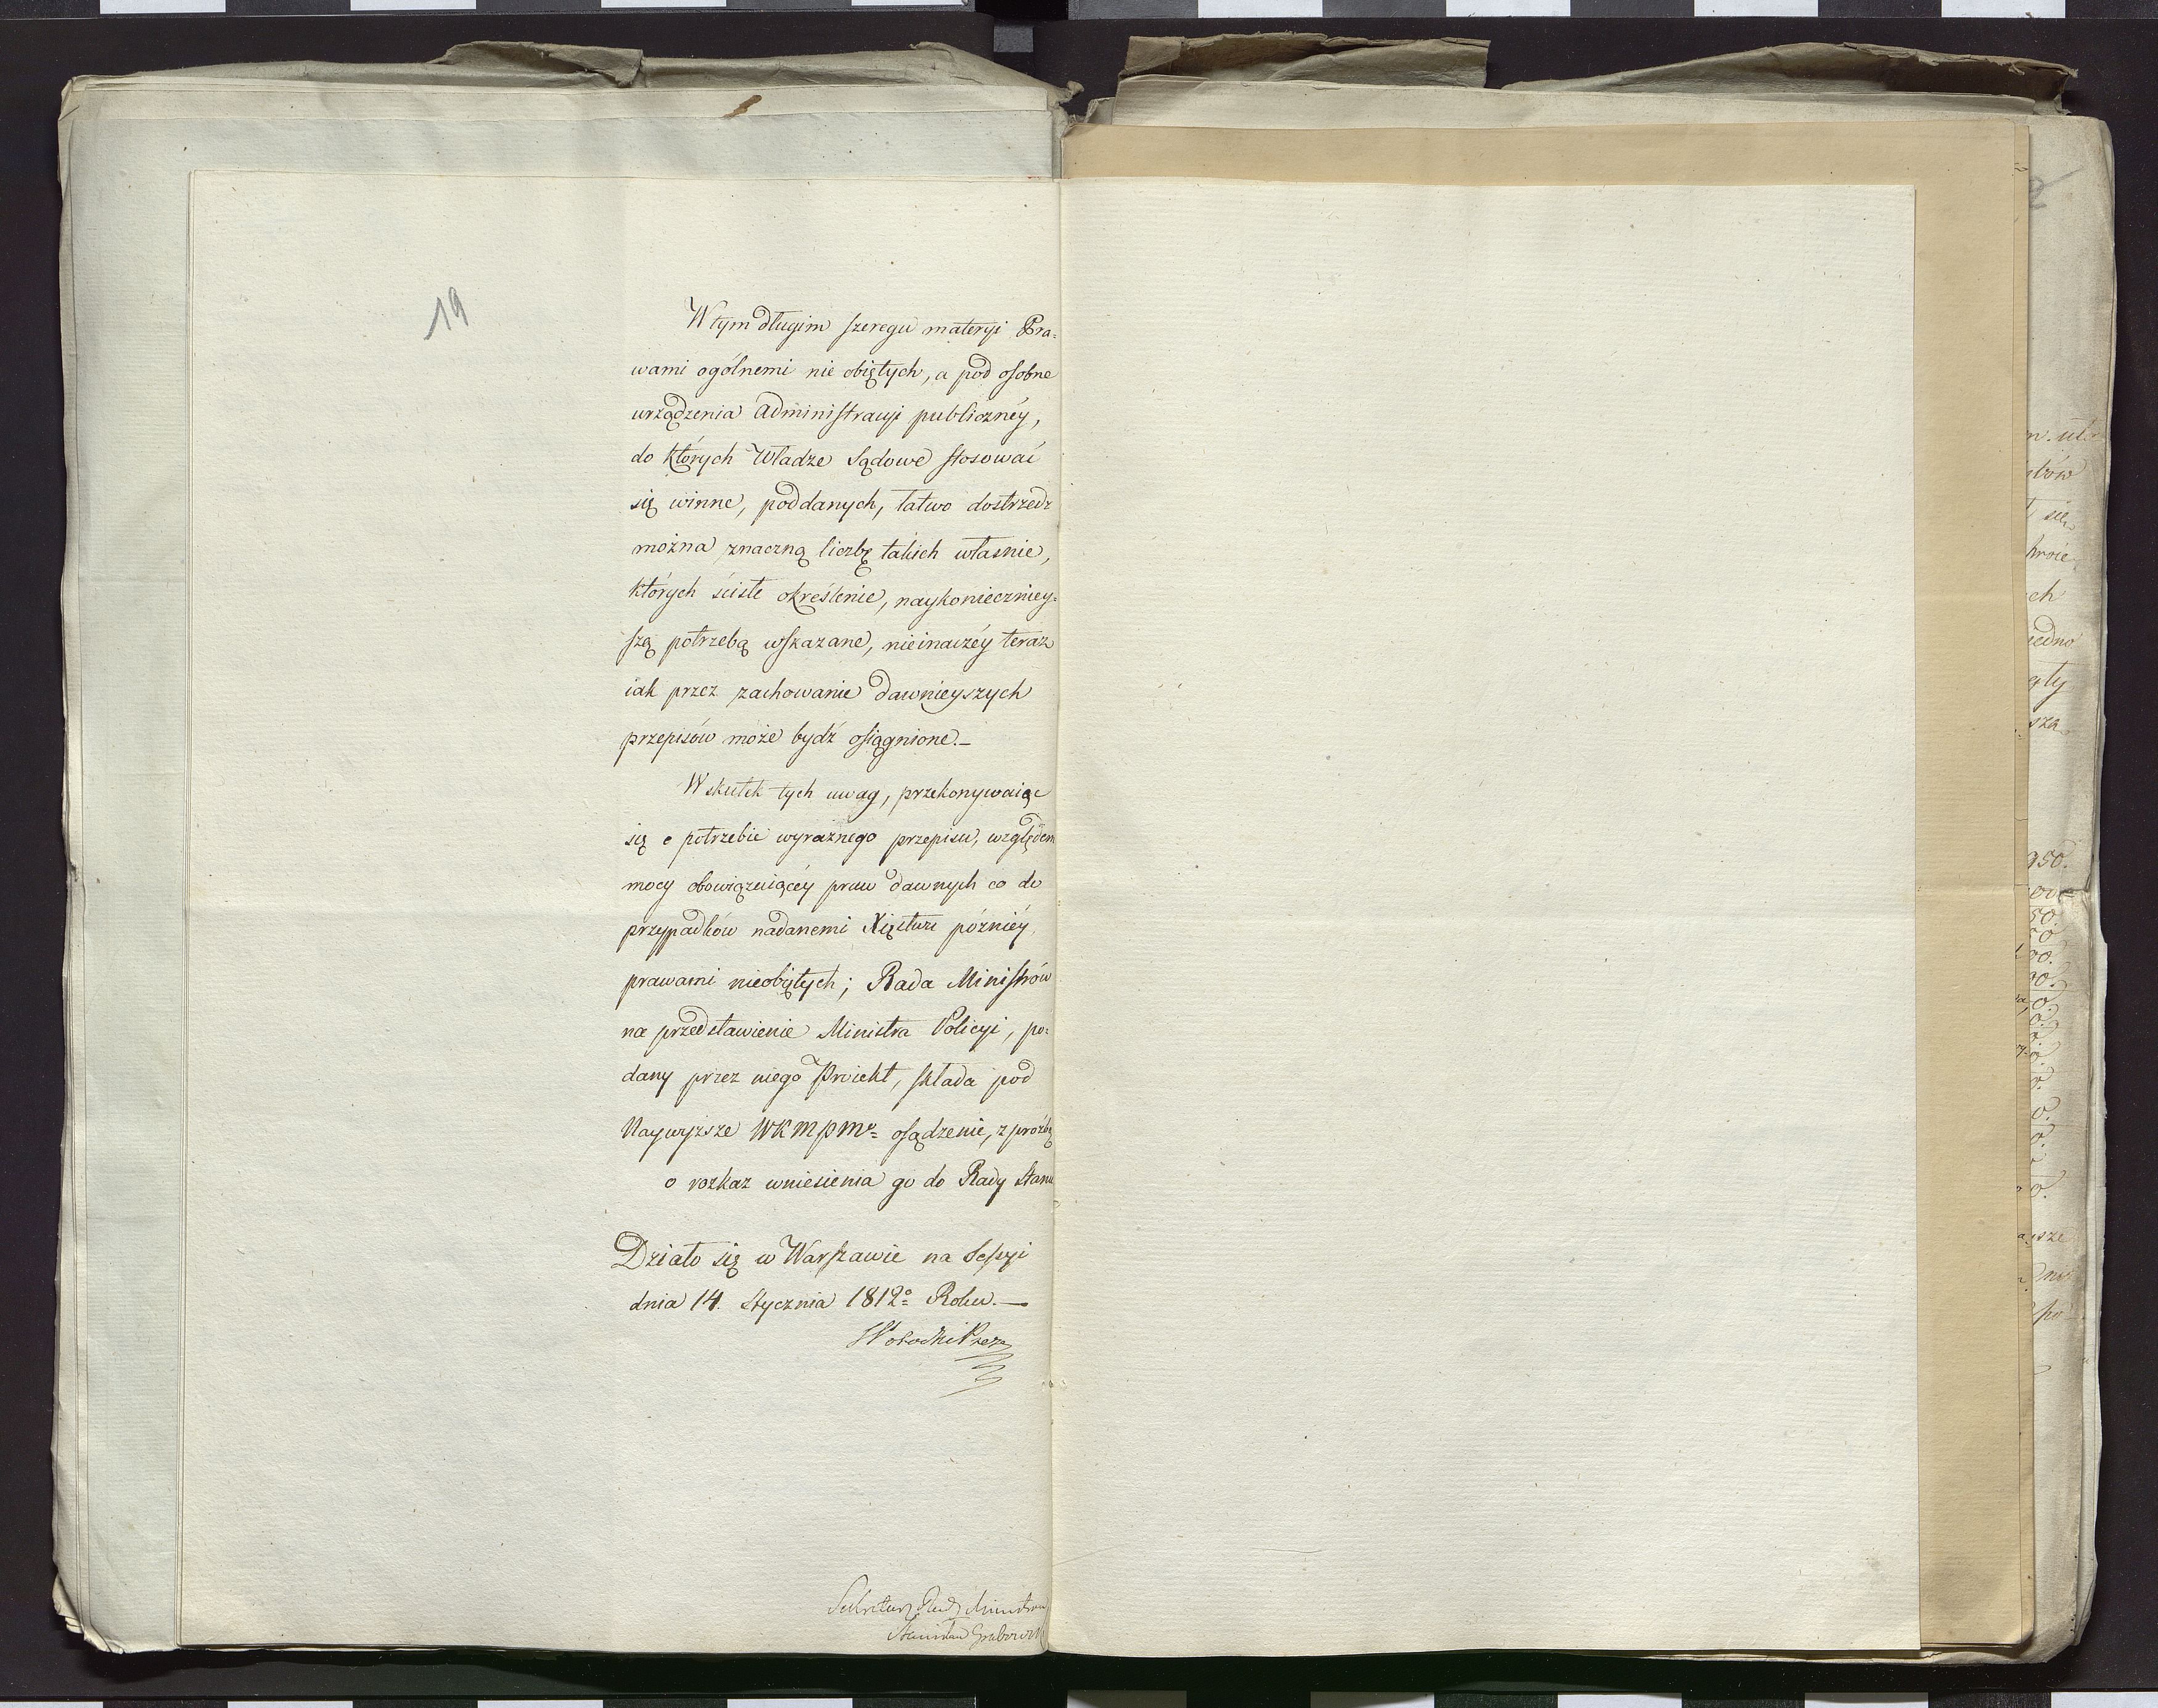 19
W tym długim szeregu materyi Pra=
wami ogólnemi nie obiętych, a pod osobne
urządzenia Administracyi publicznéy,
do których Władze Sądowe stosować
się winne, poddanych, łatwo dostrzedz
można znaczną liczbę takich właśnie,
których ściśłe określenie, naykonieczniey=
szą potrzebą wskazane, nieinaczéy teraz
iak przez zachowanie dawnieyszych
przepisów może bydź osiągnione.—
W skutek tych uwag, przekonywaiąc
się o potrzebie wyraźnego przepisu, względem
mocy obowiązuiącéy praw dawnych co do
przypadków nadanemi Xięstwu późniéy
prawami nieobiętych; Rada Ministrów
na przedstawienie Ministra Policyi, po=
dany przez niego Proiekt, składa pod
Naywyższe WKMPMo= osądzenie, z prośbą
o rozkaz wniesienia go do Rady Stanu
Działo się w Warszawie na Sessyi
dnia 14. Stycznia 1812o= Roku.—
Sekretarz Rady Ministrów
Stanisław Grabowski
n. uło
ch
iedno
sza
950.
50.
50
00.
po